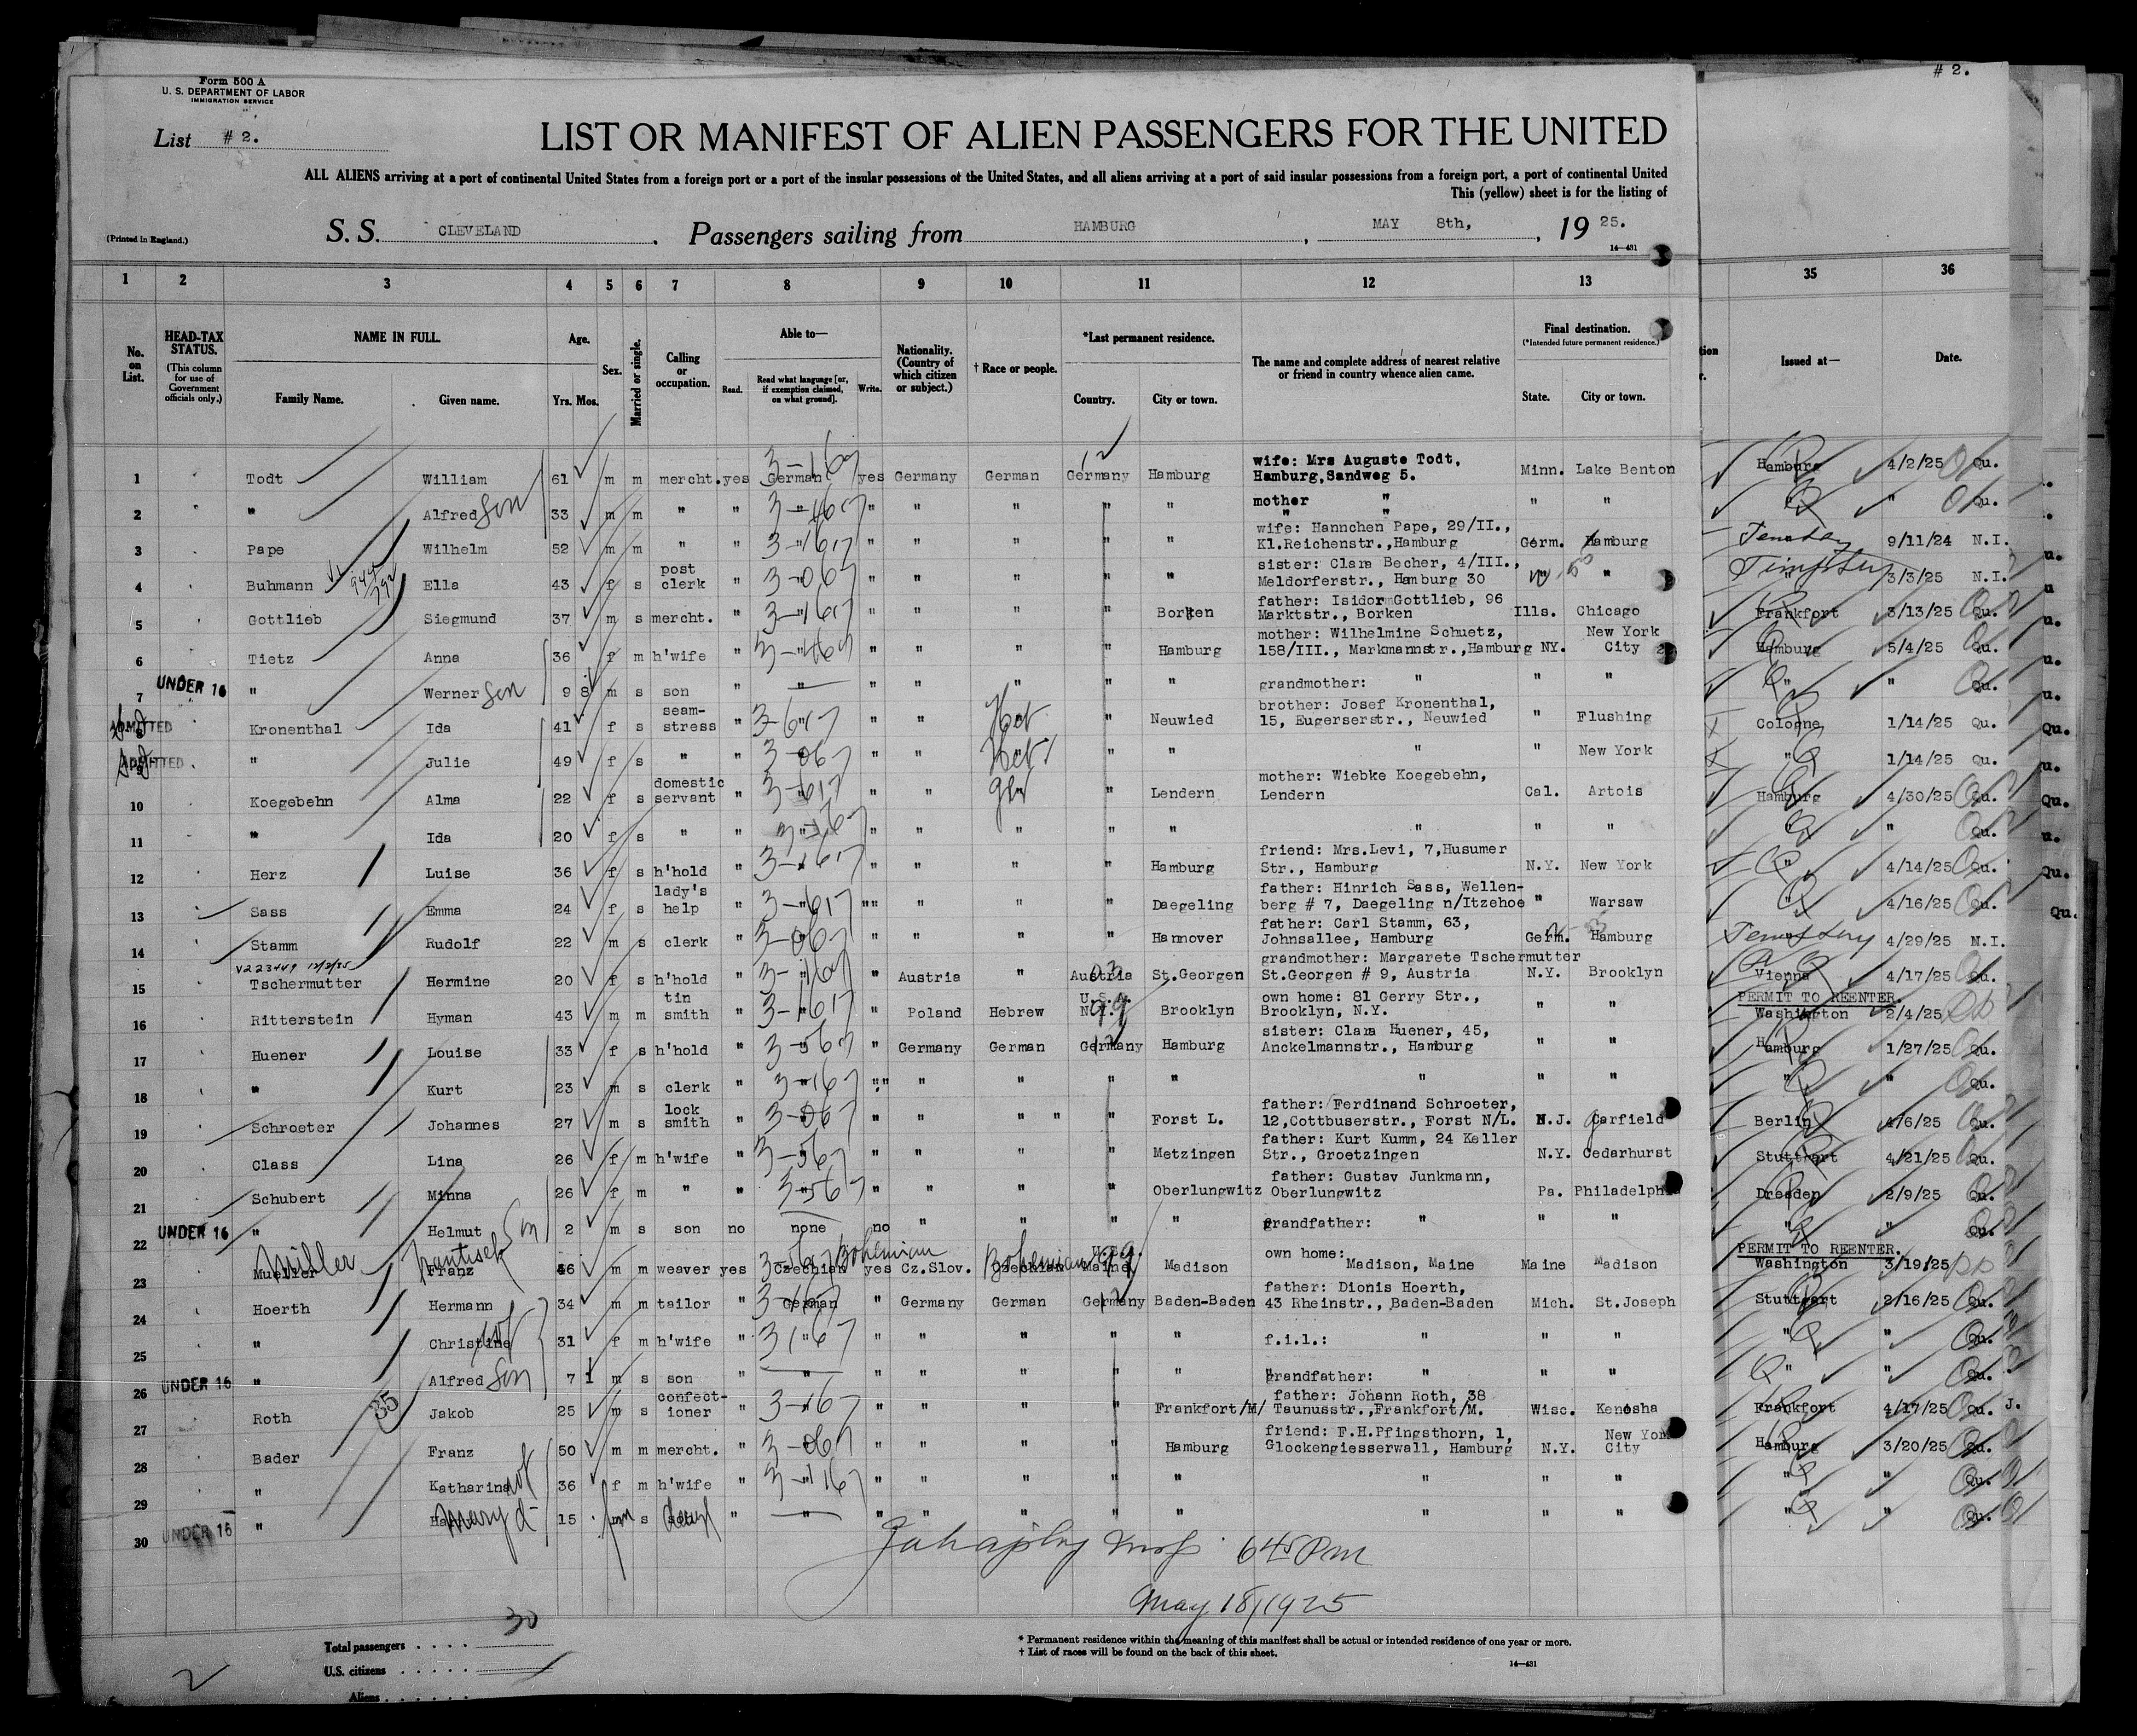 # 2.
Form 500 A
U. S. DEPARTMENT OF LABOR
IMMIGRATION SERVICE
List # 2.
LIST OR MANIFEST OF ALIEN PASSENGERS FOR THE UNITED
ALL ALIENS arriving at a port of continental United States from a foreign port or a port of the insular possessions of the United States, and all aliens arriving at a port of said insular possessions from a foreign port, a port of continental United
This (yellow) sheet is for the listing of
(Printed in England.) S. S. CLEVELAND . Passengers sailing from HAMBURG , MAY 8th, , 19 25.
14—431
1 2 3 4 5 6 7 8 9 10 11 12 13 35 36
No. on List. HEAD-TAX STATUS. (This column for use of Government officials only.) NAME IN FULL. Family Name. Given name. Age. Yrs. Mos. Sex. Married or single. Calling or occupation. Able to— Read. Read what language [or, if exemption claimed, on what ground]. Write. Nationality. (Country of which citizen or subject.) † Race or people. *Last permanent residence. Country. City or town. The name and complete address of nearest relative or friend in country whence alien came. Final destination. (*Intended future permanent residence.) State. City or town. Issued at— Date.
1 Todt William 61 m m mercht. yes German yes Germany German Germany Hamburg wife: Mrs Auguste Todt, Hamburg,Sandweg 5. Minn. Lake Benton Hamburg 4/2/25 Qu.
2 " Alfred son 33 m m " " " " " " " " mother " " " " " " Qu.
3 Pape Wilhelm 52 m m " " " " " " " " wife: Hannchen Pape, 29/II., Kl.Reichenstr.,Hamburg Germ. Hamburg 9/11/24 N.I.
4 Buhmann Ella 43 f s post clerk " " " " " " " sister: Clara Becher, 4/III., Meldorferstr., Hamburg 30 " 3/3/25 N.I.
5 Gottlieb Siegmund 37 m s mercht. " " " " " " Borken father: Isidor Gottlieb, 96 Marktstr., Borken Ills. Chicago Frankfort 3/13/25 Qu.
6 Tietz Anna 36 f m h'wife " " " " " " Hamburg mother: Wilhelmine Schuetz, 158/III., Markmannstr.,Hamburg NY. New York City Hamburg 5/4/25 Qu.
7 UNDER 16 " Werner son 9 8 m s son " " " " " " " grandmother: " " " " " Qu.
8 ADMITTED Kronenthal Ida 41 f s seamstress " " " " Heb " Neuwied brother: Josef Kronenthal, 15, Eugerserstr., Neuwied " Flushing Cologne 1/14/25 Qu.
9 ADMITTED " Julie 49 f s " " " " " Heb " " " " New York " 1/14/25 Qu.
10 Koegebehn Alma 22 f s domestic servant " " " " Ger " Lendern mother: Wiebke Koegebehn, Lendern Cal. Artois Hamburg 4/30/25 Qu.
11 " Ida 20 f s " " " " " " " " " " " " " Qu.
12 Herz Luise 36 f s h'hold " " " " " " Hamburg friend: Mrs.Levi, 7,Husumer Str., Hamburg N.Y. New York " 4/14/25 Qu.
13 Sass Emma 24 f s lady's help " " "" " " " Daegeling father: Hinrich Sass, Wellenberg # 7, Daegeling n/Itzehoe " Warsaw " 4/16/25 Qu.
14 Stamm Rudolf 22 m s clerk " " " " " " Hannover father: Carl Stamm, 63, Johnsallee, Hamburg Germ. Hamburg 4/29/25 N.I.
15 Tschermutter Hermine 20 f s h'hold " " " Austria " Austria St.Georgen grandmother: Margarete Tschermutter St.Georgen # 9, Austria N.Y. Brooklyn Vienna 4/17/25 Qu.
16 Ritterstein Hyman 43 m m tin smith " " " Poland Hebrew U.S.A. N.Y. Brooklyn own home: 81 Gerry Str., Brooklyn, N.Y. " " PERMIT TO REENTER. Washington 2/4/25
17 Huener Louise 33 f s h'hold " " " Germany German Germany Hamburg sister: Clara Huener, 45, Anckelmannstr., Hamburg " " Hamburg 1/27/25 Qu.
18 " Kurt 23 m s clerk " " "" " " " " " " " " " Qu.
19 Schroeter Johannes 27 m s lock smith " " " " " " " Forst L. father: Ferdinand Schroeter, 12,Cottbuserstr., Forst N/L. N.J. Garfield Berlin 4/6/25 Qu.
20 Class Lina 26 f m h'wife " " " " " " Metzingen father: Kurt Kumm, 24 Keller Str., Groetzingen N.Y. Cedarhurst Stuttgart 4/21/25 Qu.
21 Schubert Minna 26 f m " " " " " " " Oberlungwitz father: Gustav Junkmann, Oberlungwitz Pa. Philadelphia Dresden 2/9/25 Qu.
22 UNDER 16 " Helmut son 2 m s son no none no " " " " grandfather: " " " " " Qu.
23 Mueller Miller Franz Frantisek 46 m m weaver yes Czechian Bohemian yes Cz.Slov. Czechian Bohemian U.S.A. Maine Madison own home: Madison, Maine Maine Madison PERMIT TO REENTER. Washington 3/19/25
24 Hoerth Hermann 34 m m tailor " German " Germany German Germany Baden-Baden father: Dionis Hoerth, 43 Rheinstr., Baden-Baden Mich. St.Joseph Stuttgart 2/16/25 Qu.
25 " Christine wf 31 f m h'wife " " " " " " " f.i.l.: " " " " " Qu.
26 UNDER 16 " Alfred son 7 1 m s son " " " " " " " grandfather: " " " " " Qu.
27 Roth 35 Jakob 25 m s confectioner " " " " " " Frankfort/M/ father: Johann Roth, 38 Taunusstr.,Frankfort/M. Wisc. Kenosha Frankfort 4/17/25 Qu. J.
28 Bader Franz 50 m m mercht. " " " " " " Hamburg friend: F.H.Pfingsthorn, 1, Glockengiesserwall, Hamburg N.Y. New York City Hamburg 3/20/25 Qu.
29 " Katharina wf 36 f m h'wife " " " " " " " " " " " " Qu.
30 UNDER 16 " Mary d- 15 s " " " " " " " " " " " " Qu.
6 45 PM
May 18/1925
Total passengers . . . . 30
U.S. citizens . . . . .
Aliens . . . . . .
2
* Permanent residence within the meaning of this manifest shall be actual or intended residence of one year or more.
† List of races will be found on the back of this sheet.
14—431